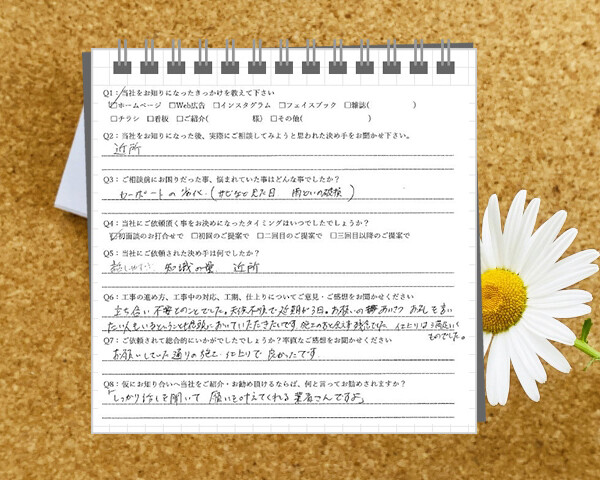 Q1：当社をお知りになったきっかけを教えて下さい
☑ホームページ □Web広告 □インスタグラム □フェイスブック □雑誌( )
□チラシ □看板 □ご紹介( 様) □その他( )
Q2：当社をお知りになった後、実際にご相談してみようと思われた決め手をお聞かせ下さい。
近所
Q3：ご相談前にお困りだった事、悩まれていた事はどんな事でしたか？
カーポートの劣化.(サビなど見た目 雨といの破損)
Q4：当社にご依頼頂く事をお決めになったタイミングはいつでしたでしょうか？
☑初面談のお打合せで □初回のご提案で □二回目のご提案で □三回目以降のご提案で
Q5：当社にご依頼された決め手は何でしたか？
話しやすい. 知識の 近所
Q6：工事の進め方、工事中の対応、工期、仕上りについてご意見・ご感想をお聞かせください
立ち合い不要とのことでした。天候不順で
たい人もいるということも
仕上りは満足いく
ものでした。
Q7：ご依頼されて総合的にいかがでしたでしょうか？率直なご感想をお聞かせください
お願いしていた通りの施工.仕上りで良かったです
Q8：仮にお知り合いへ当社をご紹介・お勧め頂けるならば、何と言ってお勧めされますか？
「しっかり話しを聞いて 願いを叶えてくれる業者さんですよ」